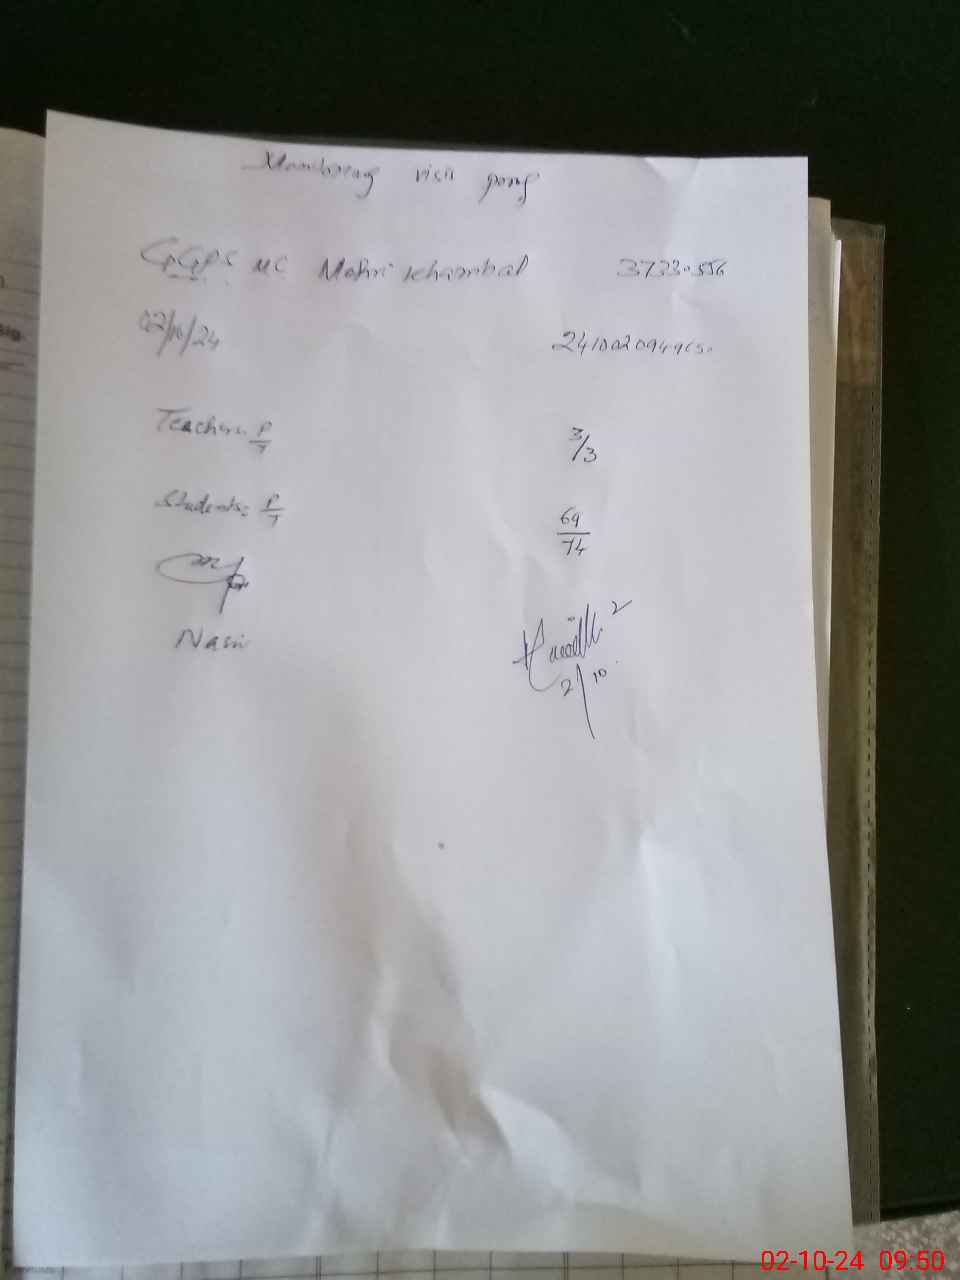 Monitoring visit
GGPS MC Mohri Khambal 37330556
02/10/24
Teachers P/T 3/3
Students: P/T 69/74
Nasir
2/10
02-10-24 09:50